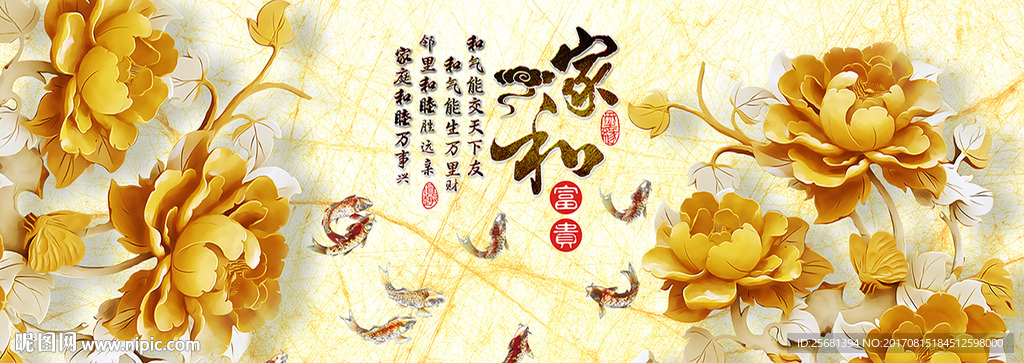 家和
富貴
和气能交天下友
和气能生万里财
邻里和睦胜远亲
家庭和睦万事兴
昵图网 www.nipic.com
ID:25681394 NO:20170815184512598000